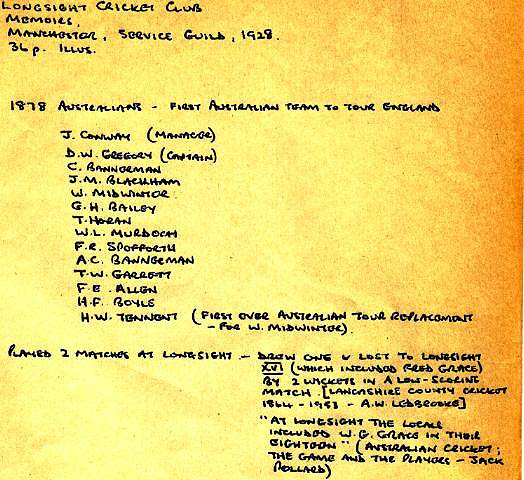 LONGSIGHT CRICKET CLUB
MEMOIRS,
MANCHESTER, SERVICE GUILD, 1928.
36 p. ILLUS.
1878 AUSTRALIANS - FIRST AUSTRALIAN TEAM TO TOUR ENGLAND
J. CONWAY (MANAGER)
D.W. GREGORY (CAPTAIN)
C. BANNERMAN
J.M. BLACKHAM
W. MIDWINTER
G.H. BAILEY
T. HORAN
W.L. MURDOCH
F.R. SPOFFORTH
A.C. BANNERMAN
T.W. GARRETT
F.E. ALLEN
H.F. BOYLE
H.W. TENNENT (FIRST EVER AUSTRALIAN TOUR REPLACEMENT
- FOR W. MIDWINTER).
PLAYED 2 MATCHES AT LONGSIGHT - DREW ONE & LOST TO LONGSIGHT
XVI (WHICH INCLUDED FRED GRACE)
BY 2 WICKETS IN A LOW-SCORING
MATCH. [LANCASHIRE COUNTY CRICKET
1864 - 1953 - A.W. LEDBROOKE]
"AT LONGSIGHT THE LOCALS
INCLUDED W.G. GRACE IN THEIR
EIGHTEEN" (AUSTRALIAN CRICKET;
THE GAME AND THE PLAYERS - JACK
POLLARD)